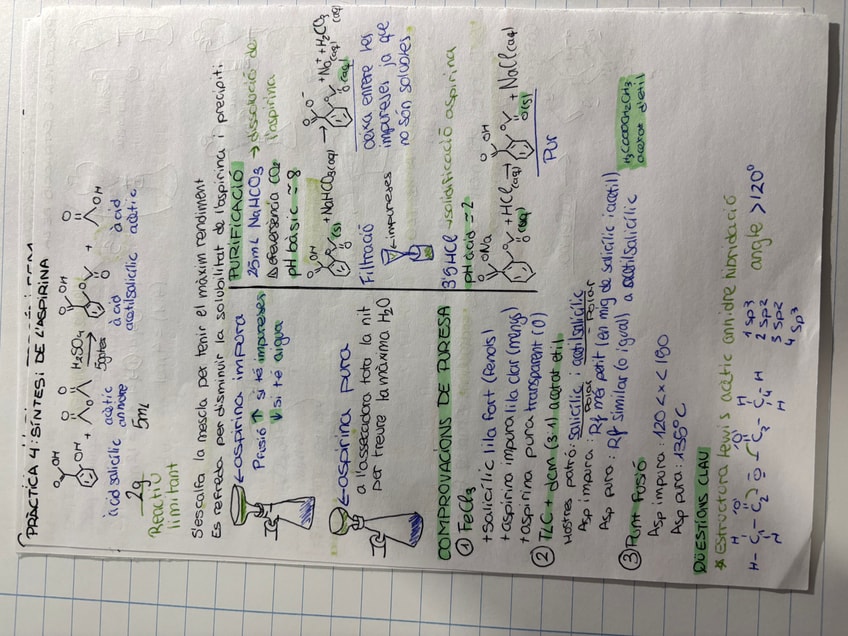 PRÀCTICA 4: SÍNTESI DE L'ASPIRINA
OH + H2SO4 5gotes + OH
àcid salicílic
acètic
àcid acetilsalicílic
àcid acètic
2g
5mL
Reactiu limitant
S'escalfa la mescla per tenir el màxim rendiment
Es refreda per disminuir la solubilitat de l'aspirina i precipiti
←aspirina impura
Pfusió ↑ si té impureses
↓ si té aigua
←aspirina pura
a l'assecadora tota la nit
per treure la màxima H2O
PURIFICACIÓ
25mL NaHCO3 → dissolució de l'aspirina
Δ efervescencia CO2
pH bàsic ≈ 8
OH (s) + NaHCO3(aq) → O⁻ (aq) + Na⁺(aq) + H2CO3
Filtració
←impureses
deixa enrere les
impureses ja que
no són solubles
3'5 HCl → solidificació aspirina
pH àcid ≈ 2
ONa (aq) + HCl(aq) → OH (s) + NaCl(aq)
Pur
COMPROVACIONS DE PURESA
① FeCl3
+ salicílic lila fort (fenols)
+ aspirina impura lila clar (menys)
+ aspirina pura transparent (0)
② TLC + dcm (3:1) acetat etil
H3COOCH2CH3
acetat d'etil
Mostres patró: salicílic i acetilsalicílic
Polar - Polar
Asp impura: Rf més petit (en mig de salicílic i acetil)
Asp pura: Rf similar (o igual) a acetilsalicílic
③ Punt fusió
Asp impura: 120 < x < 180
Asp pura: 135°C
QÜESTIONS CLAU
* Estructura lewis acètic anhidre hibridació
H O O H
H - C1 - C2 - O - C3 - C4 - H
H H
1 Sp3
2 Sp2
3 Sp2
4 Sp3
angle >120°